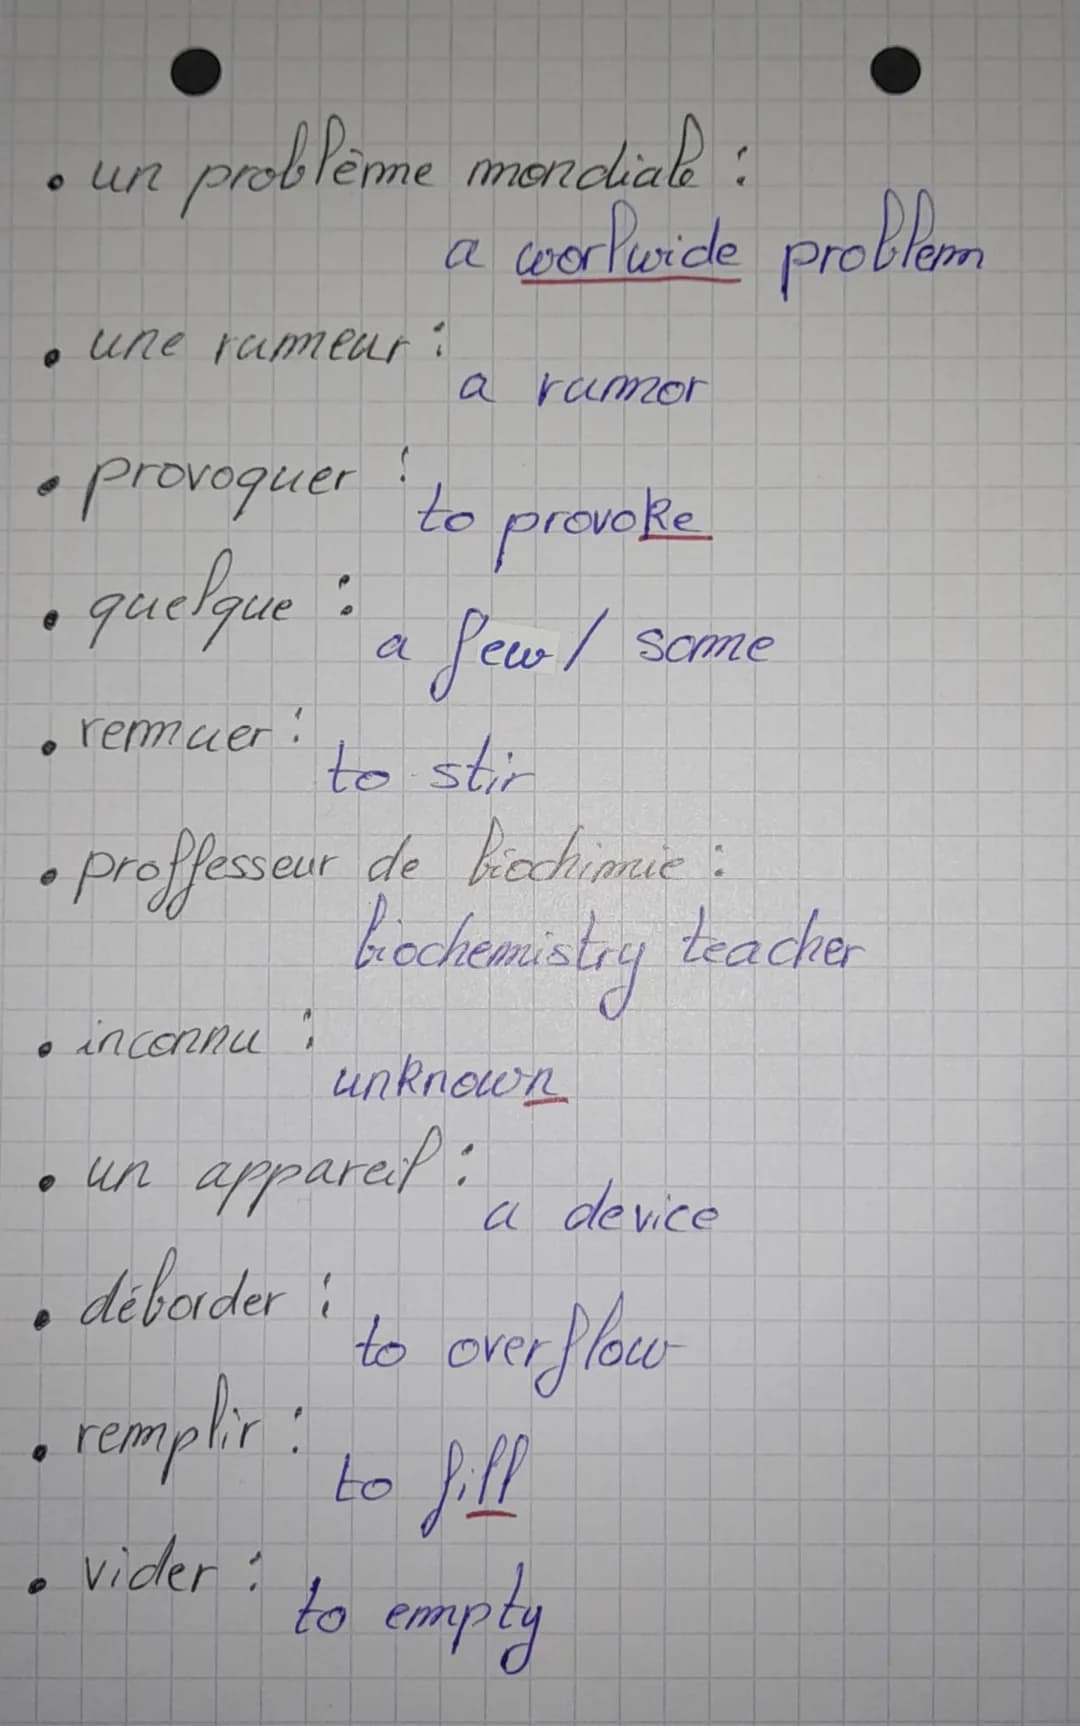 • un problème mondiale :
a worlwide problem
• une rumeur :
a rumor
• provoquer :
to provoke
• quelque :
a few / some
• remuer :
to stir
• proffesseur de biochimie :
biochemistry teacher
• inconnu :
unknown
• un appareil :
a device
• déborder :
to overflow
• remplir :
to fill
• vider :
to empty